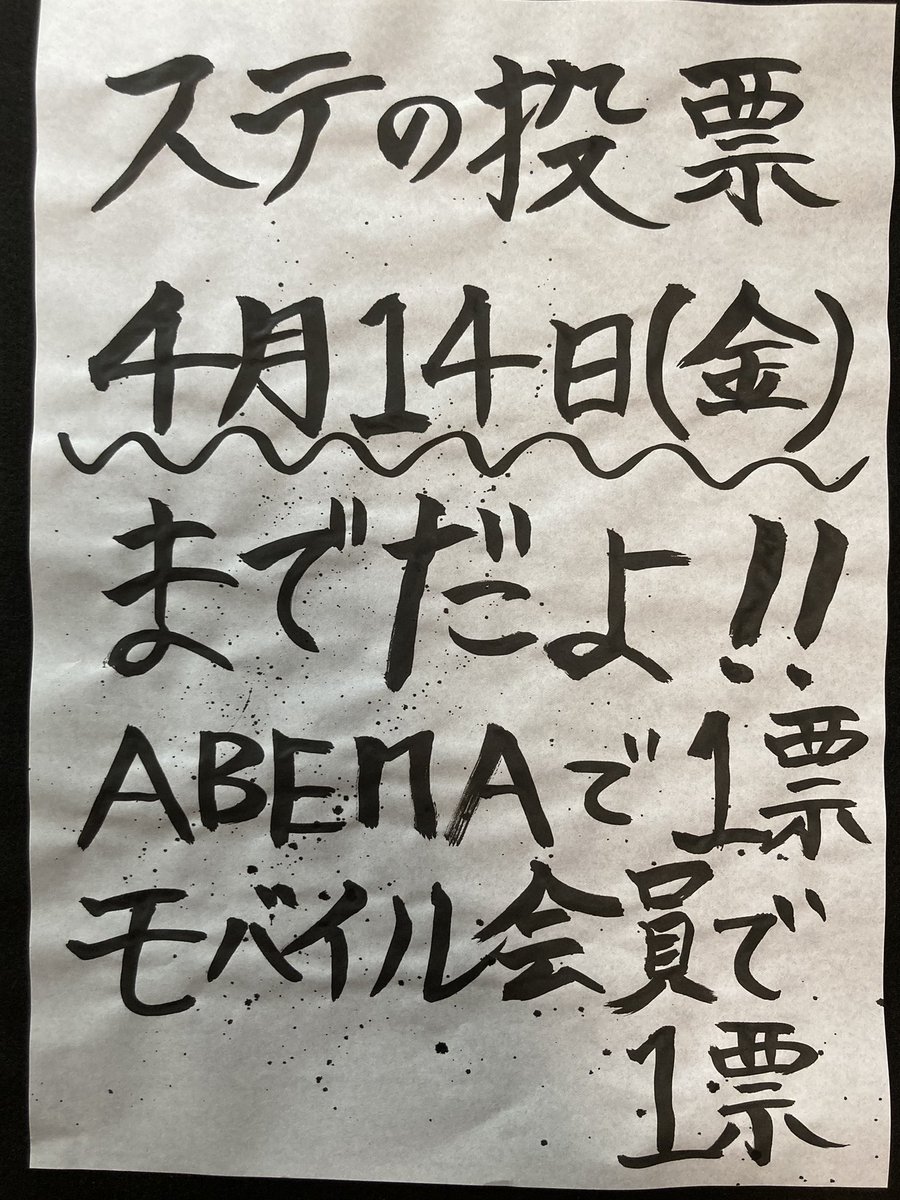 ステの投票
4月14日(金)
までだよ!!
ABEMAで1票
モバイル会員で
1票